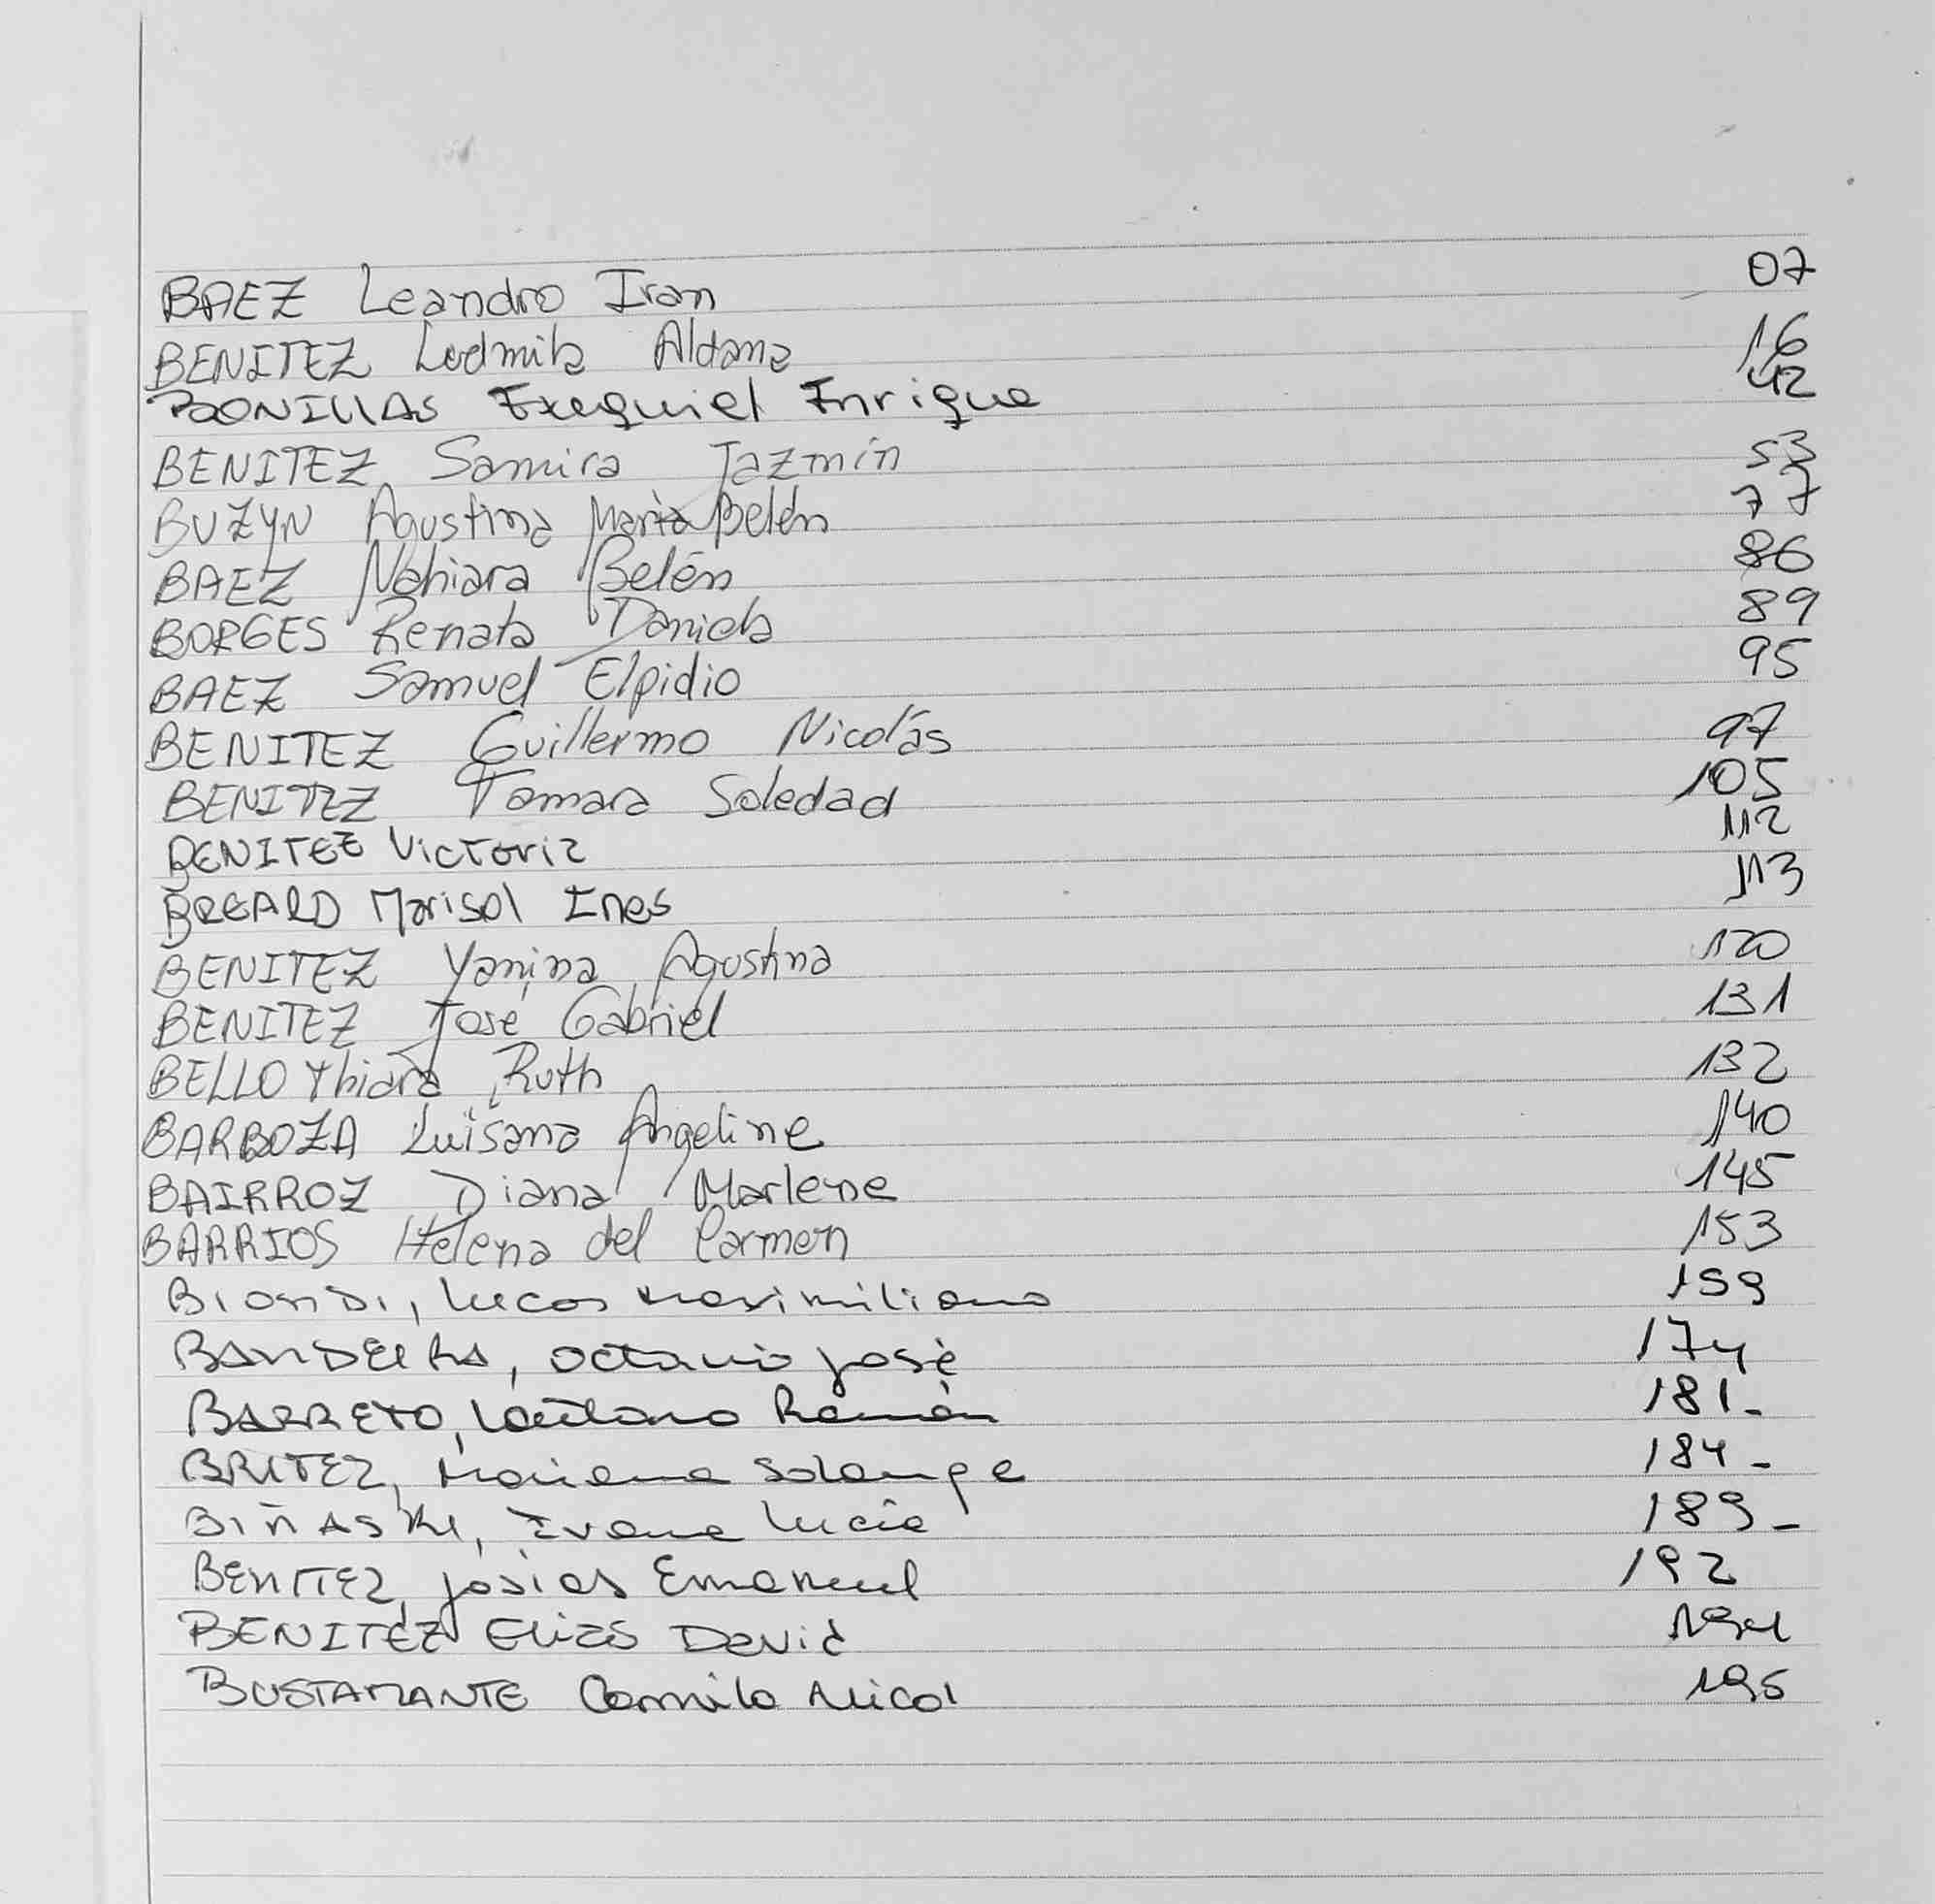 BAEZ Leandro Ivan 07
BENITEZ Ludmila Aldana 16
BONILLAS Exequiel Enrique 42
BENITEZ Samira Jazmín 53
BUZYN Agustina María Belén 77
BAEZ Nahiara Belén 86
BORGES Renata Daniela 89
BAEZ Samuel Elpidio 95
BENITEZ Guillermo Nicolás 97
BENITEZ Tamara Soledad 105
BENITEZ Victoria 112
BREARD Marisol Ines 113
BENITEZ Yanina Agustina 120
BENITEZ José Gabriel 131
BELLO Thiara Ruth 132
BARBOZA Luisana Angeline 140
BAIRROZ Diana Marlene 145
BARRIOS Helena del Carmen 153
BIONDI, Lucas Maximiliano 159
BANDEIRA, Octavio José 174
BARRETO, Lautaro Ramón 181-
BRITEZ, Mariana Solange 184-
BIÑASKI, Ivana Lucía 189-
BENITEZ, Josias Emanuel 192
BENITEZ Elias David 194
BUSTAMANTE Camila Micol 195